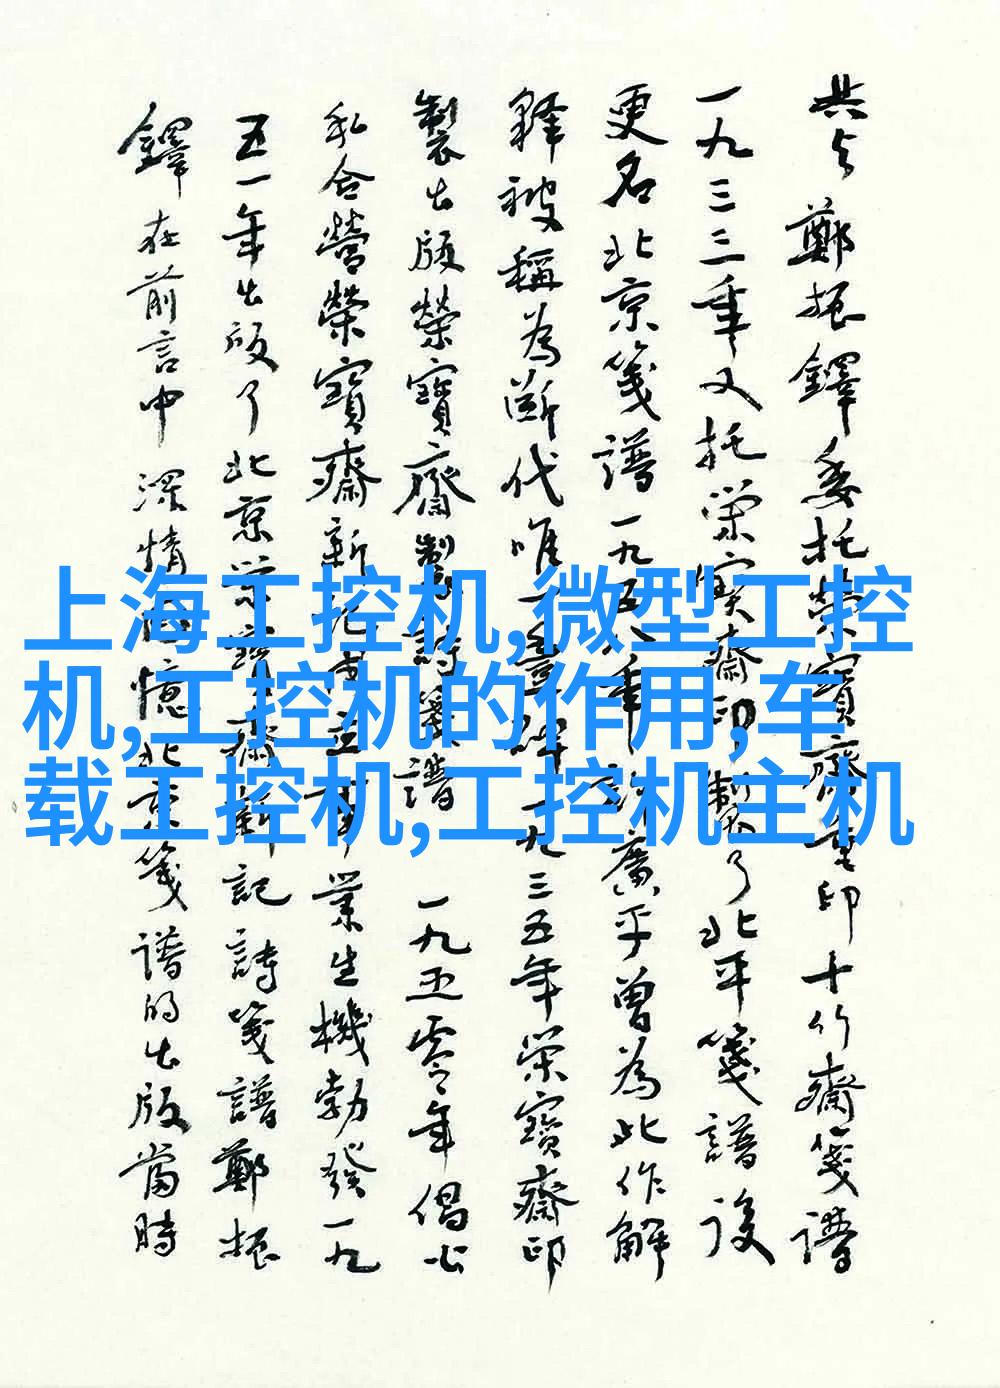 共与鄭振鐸委托榮寶齋重印十竹齋箋譜
一九三三年又托榮寶齋印製了北平箋譜後
更名北京箋譜一九五八年許廣平曾為此作解
釋被稱為斷代唯一一九三五年榮寶齋印
製出版榮寶齋製詩箋譜一九五零年倡公
私合營榮寶齋新記業生機勃發一九
五一年出版了北京榮寶齋新記詩箋譜鄭振
鐸在前言中深情憶北京箋譜的出版當時
上海工控机,微型工控
机,工控机的作用,车
载工控机,工控机主机